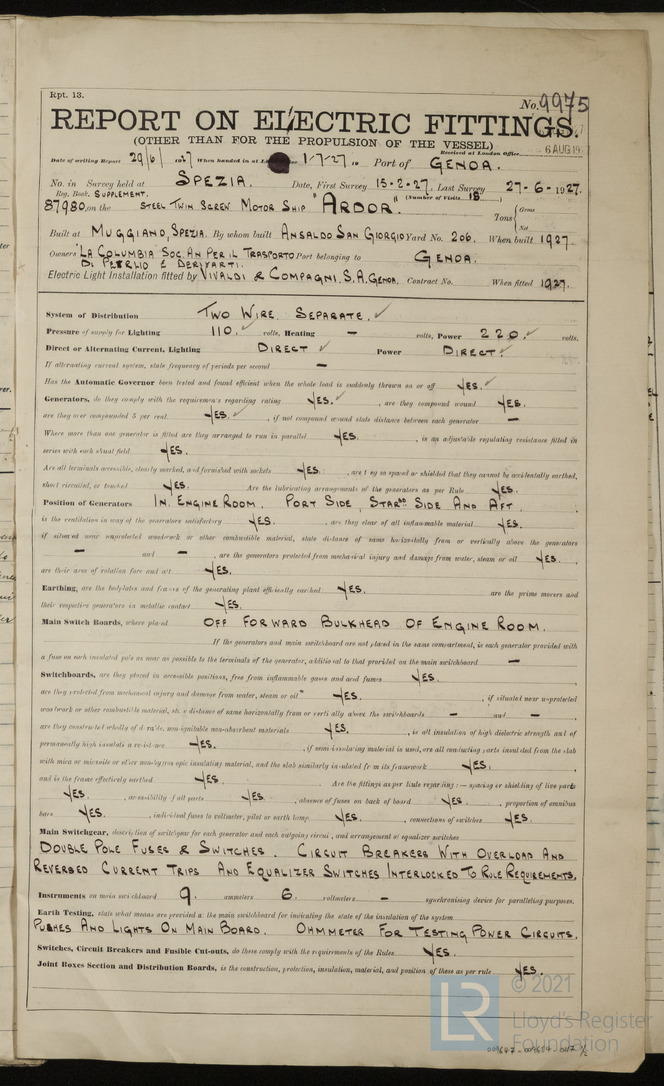 Rpt. 13.
No. 9975
REPORT ON ELECTRIC FITTINGS.
(OTHER THAN FOR THE PROPULSION OF THE VESSEL)
Received at London Office
6 AUG 19
Date of writing Report 29/6/ 1927 When handed in at 1-7-27 19 Port of GENOA.
No. in Survey held at SPEZIA. Date, First Survey 15-2-27. Last Survey 27-6-1927.
Reg. Book. SUPPLEMENT. (Number of Visits 18
87980 on the STEEL TWIN SCREW MOTOR SHIP "ARDOR." Tons { Gross Net
Built at MUGGIANO, SPEZIA. By whom built ANSALDO SAN GIORGIO Yard No. 206. When built 1927.
Owners "LA COLUMBIA" SOC. AN. PER IL TRASPORTO DI PETROLIO E DERIVATI. Port belonging to GENOA.
Electric Light Installation fitted by VIVALDI & COMPAGNI. S.A. GENOA. Contract No. When fitted 1927.
System of Distribution TWO WIRE. SEPARATE. ✓
Pressure of supply for Lighting 110. ✓ volts, Heating — volts, Power 220. ✓ volts.
Direct or Alternating Current, Lighting DIRECT ✓ Power DIRECT. ✓
If alternating current system, state frequency of periods per second —
Has the Automatic Governor been tested and found efficient when the whole load is suddenly thrown on or off YES. ✓
Generators, do they comply with the requirements regarding rating YES. ✓, are they compound wound YES.
are they over compounded 5 per cent. YES. ✓, if not compound wound state distance between each generator —
Where more than one generator is fitted are they arranged to run in parallel YES., is an adjustable regulating resistance fitted in
series with each shunt field YES.
Are all terminals accessible, clearly marked, and furnished with sockets YES., are they so spaced or shielded that they cannot be accidentally earthed,
short circuited, or touched YES. Are the lubricating arrangements of the generators as per Rule YES.
Position of Generators IN ENGINE ROOM. PORT SIDE, STARBD SIDE AND AFT.
is the ventilation in way of the generators satisfactory YES., are they clear of all inflammable material YES.
if situated near unprotected woodwork or other combustible material, state distance of same horizontally from or vertically above the generators
— and —, are the generators protected from mechanical injury and damage from water, steam or oil YES.,
are their axes of rotation fore and aft YES.
Earthing, are the bedplates and frames of the generating plant efficiently earthed YES. are the prime movers and
their respective generators in metallic contact YES.
Main Switch Boards, where placed OFF FORWARD BULKHEAD OF ENGINE ROOM.
If the generators and main switchboard are not placed in the same compartment, is each generator provided with
a fuse on each insulated pole as near as possible to the terminals of the generator, additional to that provided on the main switchboard —
Switchboards, are they placed in accessible positions, free from inflammable gases and acid fumes YES.
are they protected from mechanical injury and damage from water, steam or oil YES., if situated near unprotected
woodwork or other combustible material, state distance of same horizontally from or vertically above the switchboards — and —,
are they constructed wholly of durable, non-ignitable non-absorbent materials YES., is all insulation of high dielectric strength and of
permanently high insulation resistance YES., if semi-insulating material is used, are all conducting parts insulated from the slab
with mica or micanite or other non-hygroscopic insulating material, and the slab similarly insulated from its framework YES.,
and is the frame effectively earthed YES. Are the fittings as per Rule regarding:— spacing or shielding of live parts
YES., accessibility of all parts YES., absence of fuses on back of board YES., proportion of omnibus
bars YES., individual fuses to voltmeter, pilot or earth lamp YES., connections of switches YES.
Main Switchgear, description of switchgear for each generator and each outgoing circuit, and arrangement of equalizer switches
DOUBLE POLE FUSES & SWITCHES. CIRCUIT BREAKERS WITH OVERLOAD AND
REVERSED CURRENT TRIPS AND EQUALIZER SWITCHES INTERLOCKED TO RULE REQUIREMENTS.
Instruments on main switchboard 9. ammeters 6. voltmeters — synchronising device for paralleling purposes.
Earth Testing, state what means are provided at the main switchboard for indicating the state of the insulation of the system
PUSHES AND LIGHTS ON MAIN BOARD. OHMMETER FOR TESTING POWER CIRCUITS.
Switches, Circuit Breakers and Fusible Cut-outs, do these comply with the requirements of the Rules YES.
Joint Boxes Section and Distribution Boards, is the construction, protection, insulation, material, and position of these as per rule YES.
© 2021
LR
Lloyd's Register
Foundation